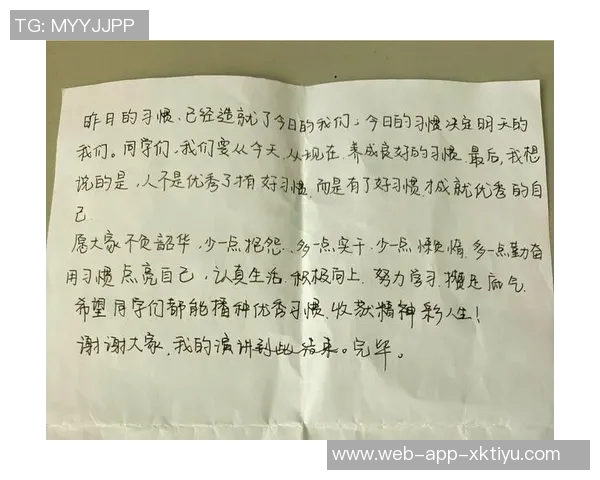 TG: MYYJJPP
昨日的习惯，已经造就了今日的我们；今日的习惯决定明天的
我们。同学们，我们要从今天，从现在，养成良好的习惯。最后，我想
说的是，人不是优秀了才有好习惯，而是有了好习惯，才成就优秀的自
己。
愿大家不负韶华，少一点抱怨，多一点实干，少一点懒惰，多一点勤奋
用习惯点亮自己，认真生活，积极向上，努力学习，攒足底气
希望同学们都能播种优秀习惯，收获精神彩人生！
谢谢大家，我的演讲到此结束。完毕。
www.web-app-xktiyu.com